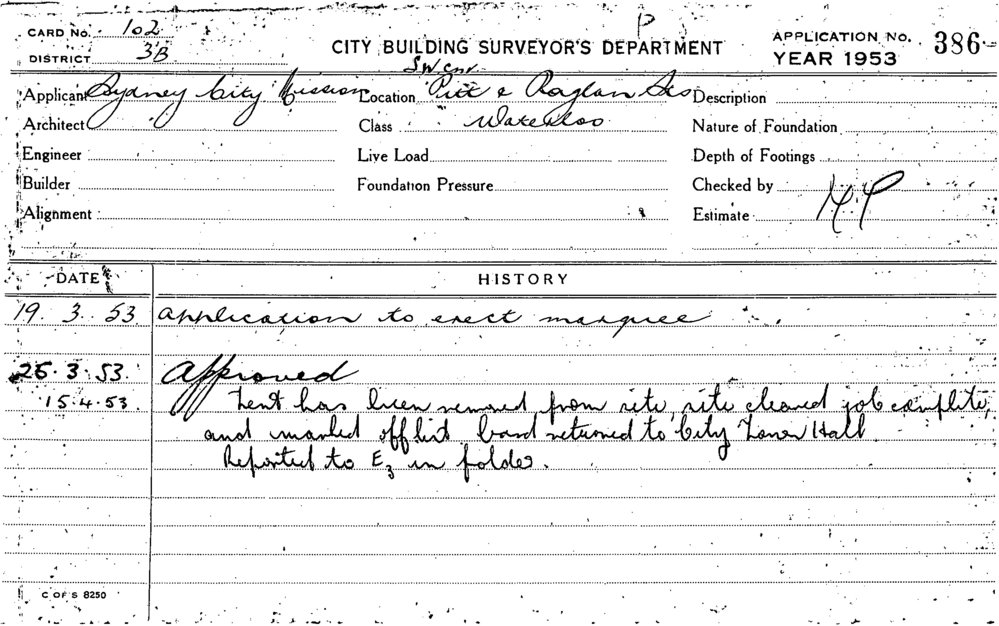 P
CARD No. 102
DISTRICT 3B
CITY BUILDING SURVEYOR'S DEPARTMENT
APPLICATION No. 386
YEAR 1953
SW Cnr.
Applicant Sydney City Mission Location Pitt & Raglan Sts Description
Architect Class Waterloo Nature of Foundation
Engineer Live Load Depth of Footings
Builder Foundation Pressure Checked by
Alignment Estimate
DATE HISTORY
19. 3. 53 Application to erect marquee
25. 3. 53. Approved
15.4.53. Tent has been removed from site, site cleared job complete,
and marked off list Card returned to City Town Hall.
Reported to E3 in folder.
C OF S 8250